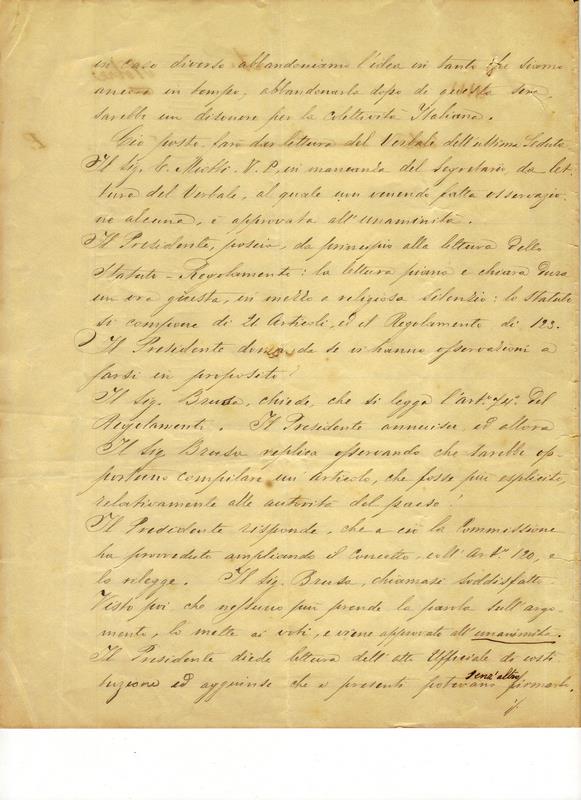 in caso diverso abbandoniamo l'idea in tanto che siamo
ancora in tempo, abbandonarla dopo di questa sera,
sarebbe un disonore per la colettività Italiana.
Ciò posto, farò dar lettura del Verbale dell'ultima Seduta
Il Sig. E. V. P. in mancanza del Segretario, da let-
tura del Verbale, al quale non venendo fatta osservazio-
ne alcuna, è approvata all'unaminità.
Il Presidente, poscia, da principio alla lettura dello
Statuto-Regolamento: la lettura piana e chiara dura
un'ora giusta, in mezzo a religioso silenzio: lo Statuto
si compone di 21 Articoli, ed il Regolamento di 123.
Il Presidente domanda se vi hanno osservazioni a
farsi in proposito?
Il Sig. Brusa, chiede, che si legga l'art.º 74º del
Regolamento. Il Presidente annuisce, ed allora
Il Sig Brusa replica osservando che sarebbe op-
portuno compilare un articolo, che fosse più esplicito,
relativamente alle autorità del paese!
Il Presidente risponde, che a ciò la Commissione
ha provveduto ampliando il concetto, coll'Art.º 120, e
lo rilegge. Il Sig. Brusa, chiamasi soddisfatto.
Visto poi, che nessuno più prende la parola sull'argo-
mento, lo mette ai voti, e viene approvato all'unanimità.
Il Presidente diede lettura dell'atto Ufficiale di costi
tuzione ed aggiunse che i presenti potevano senz'altro firmarlo.